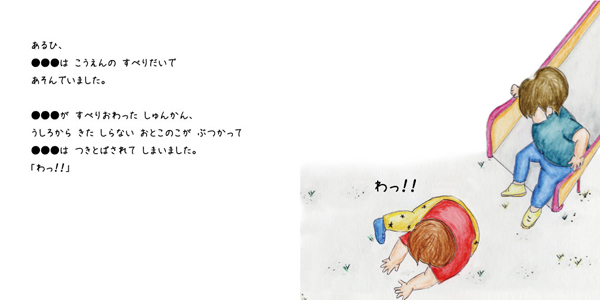 あるひ、
●●●は こうえんの すべりだいで
あそんでいました。
●●●が すべりおわった しゅんかん、
うしろから きた しらない おとこのこが ぶつかって
●●●は つきとばされて しまいました。
「わっ!!」
わっ!!